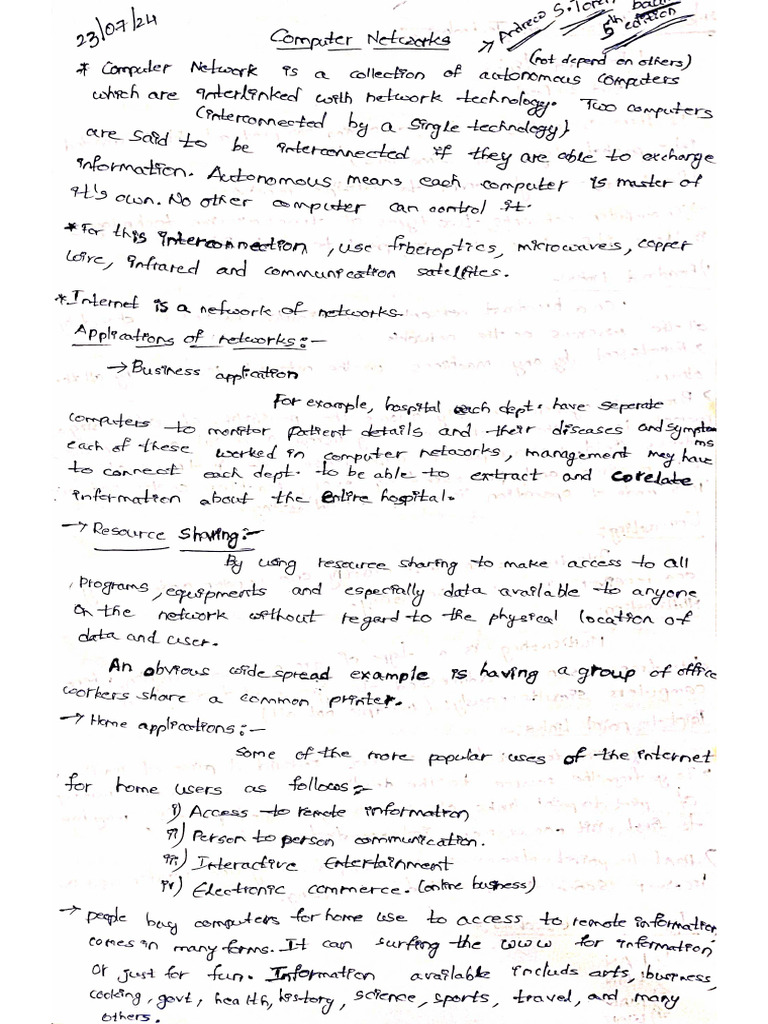 23/07/24
Computer Networks → Andrew S.
5th edition
(not depend on others)
* Computer Network is a collection of autonomous computers
which are interlinked with network technology. Two computers
(interconnected by a single technology)
are said to be interconnected if they are able to exchange
information. Autonomous means each computer is master of
it's own. No other computer can control it.
* For this interconnection, use fiberoptics, microwaves, copper
wire, infrared and communication satellites.
* Internet is a network of networks.
Applications of networks:-
→ Business application
For example, hospital each dept. have seperate
computers to monitor patient details and their diseases and symptoms
each of these worked in computer networks, management may have
to connect each dept. to be able to extract and corelate
information about the entire hospital.
→ Resource Sharing:-
By using resource sharing to make access to all
programs, equipments and especially data available to anyone
on the network without regard to the physical location of
data and user.
An obvious wide spread example is having a group of office
workers share a common printer.
→ Home applications:-
Some of the more popular uses of the internet
for home users as follows:-
i) Access to remote information
ii) Person to person communication.
iii) Interactive Entertainment
iv) Electronic commerce. (online business)
→ people buy computers for home use to access to remote information
comes in many forms. It can surfing the www for information
or just for fun. Information available includs arts, business,
cooking, govt, health, history, science, sports, travel, and many
others.